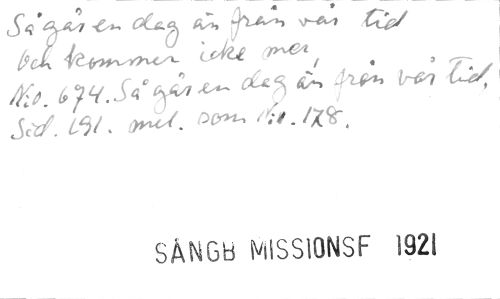 Så går en dag än från vår tid
och kommer icke mer,
N:o. 674. Så går en dag än från vår tid.
Sid. 191. mel. som N:o. 178.
SÅNGB MISSIONSF 1921